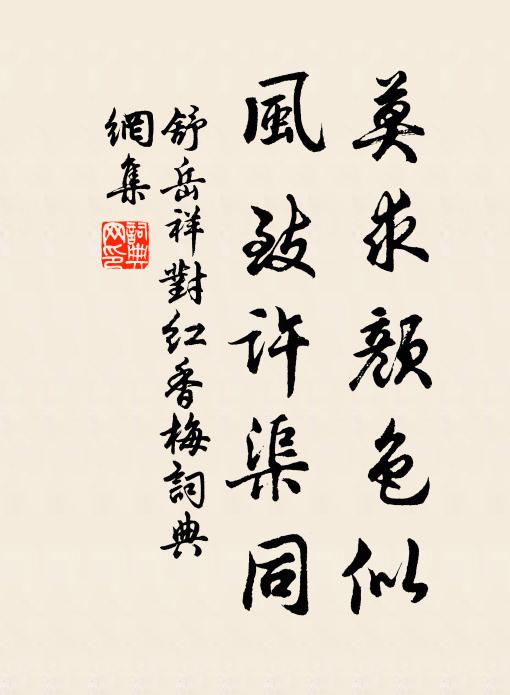 莫求顏色似
風致許渠同
舒岳祥對紅香梅詞典
網集
詞典
网印